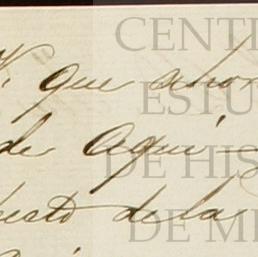 que ahor
de aqui
uesto de la
CENT
ESTU
DE HIS
DE M